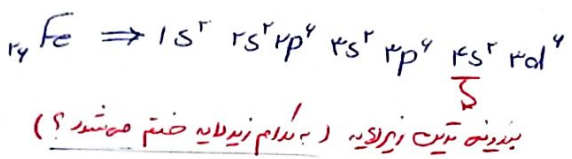 ۲۶Fe ⇒ 1s² ۲s² ۲p⁶ ۳s² ۳p⁶ ۴s² ۳d⁶
بیرونی ترین زیرلایه (به کدام زیرلایه ختم می‌شود؟)